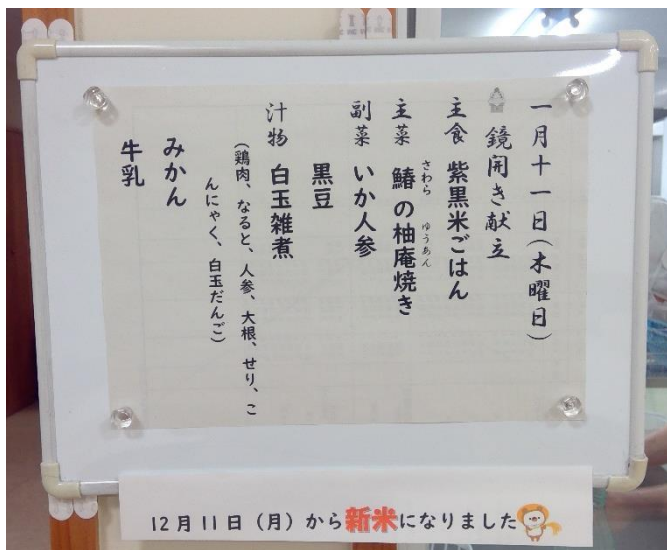 一月十一日(木曜日)
鏡開き献立
主食 紫黒米ごはん
さわら ゆうあん
主菜 鰆の柚庵焼き
副菜 いか人参
黒豆
汁物 白玉雑煮
(鶏肉、なると、人参、大根、せり、こ
んにゃく、白玉だんご)
みかん
牛乳
12月11日(月)から新米になりました